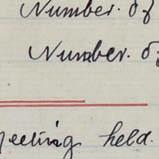 Number. of
Number. of
Meeting held.